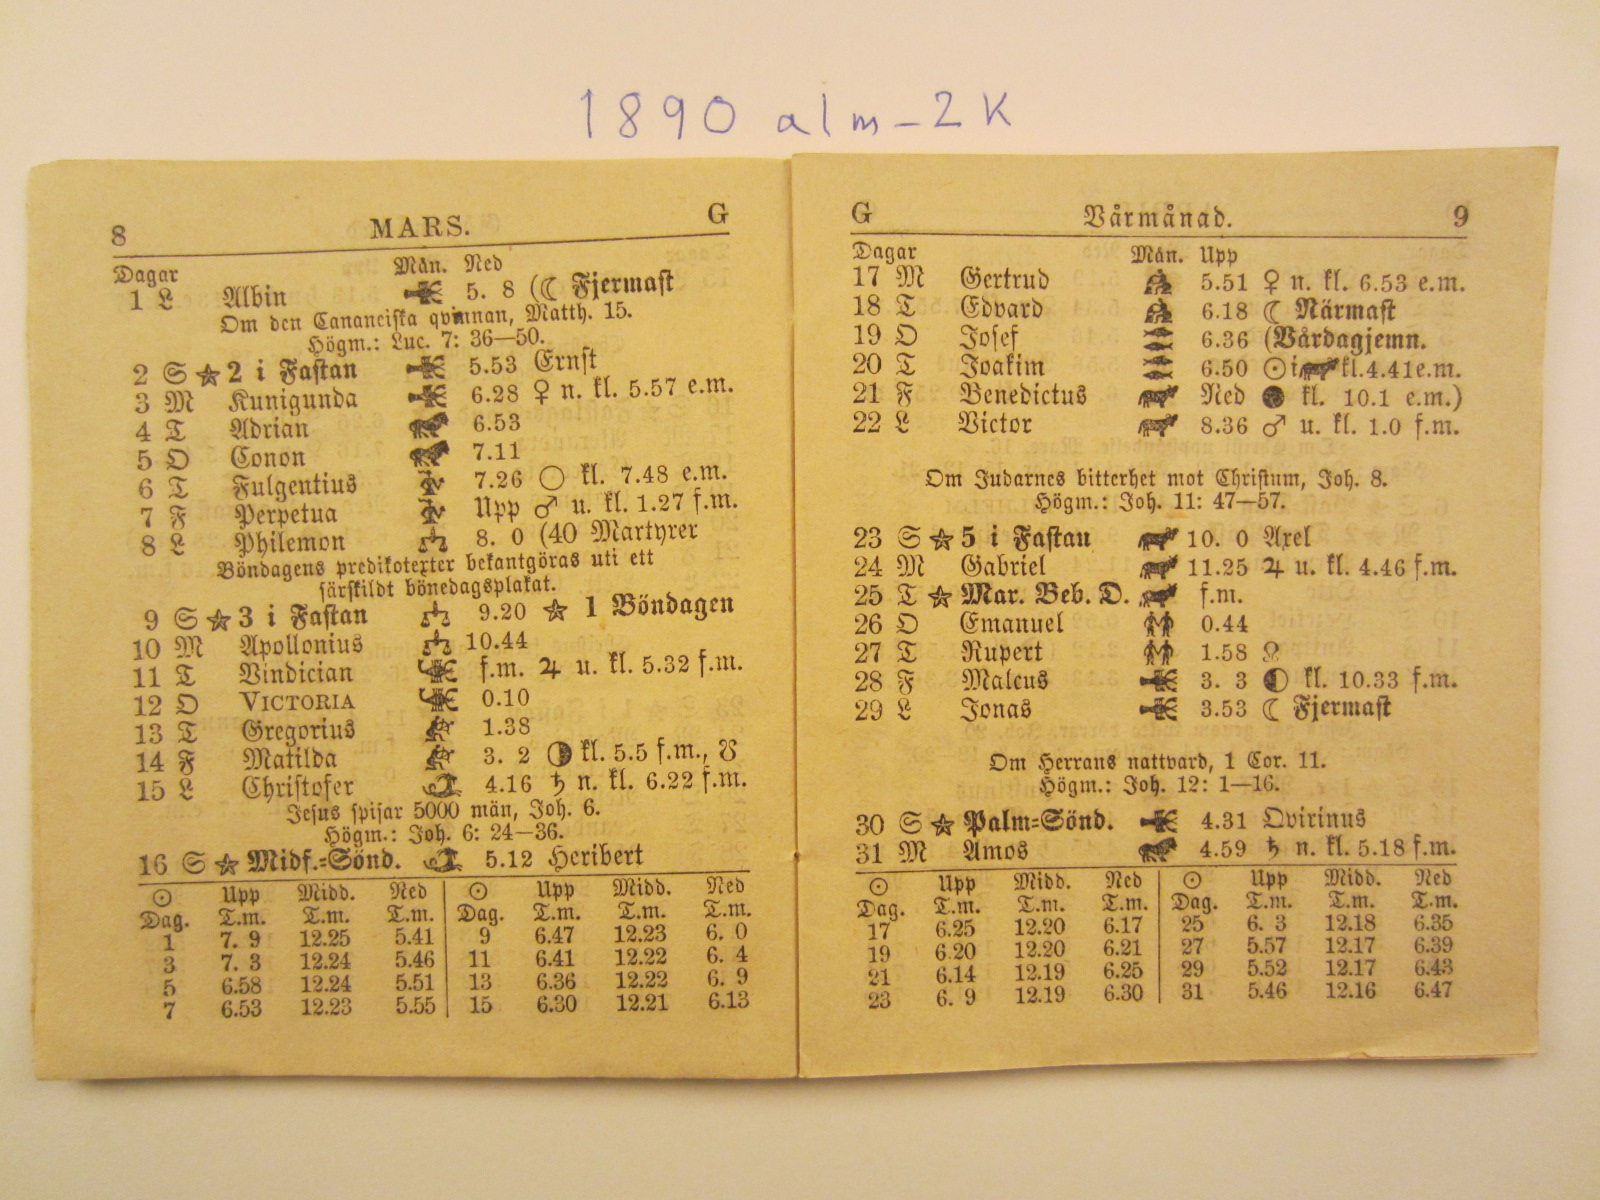 1890 alm-2K
8 MARS. G
Dagar Mån. Ned
1 L Albin 5. 8 (☾ Fjermast
Om den Cananeiska qvinnan, Matth. 15.
Högm.: Luc. 7: 36—50.
2 S ★ 2 i Fastan 5.53 Ernst
3 M Kunigunda 6.28 ♀ n. kl. 5.57 e.m.
4 T Adrian 6.53
5 O Conon 7.11
6 T Fulgentius 7.26 ○ kl. 7.48 e.m.
7 F Perpetua Upp ♂ u. kl. 1.27 f.m.
8 L Philemon 8. 0 (40 Martyrer
Böndagens predikotexter bekantgöras uti ett
särskildt bönedagsplakat.
9 S ★ 3 i Fastan 9.20 ★ 1 Böndagen
10 M Apollonius 10.44
11 T Vindician f.m. ♃ u. kl. 5.32 f.m.
12 O VICTORIA 0.10
13 T Gregorius 1.38
14 F Matilda 3. 2 ◑ kl. 5.5 f.m., ☋
15 L Christofer 4.16 ♄ n. kl. 6.22 f.m.
Jesus spisar 5000 män, Joh. 6.
Högm.: Joh. 6: 24—36.
16 S ★ Midf.=Sönd. 5.12 Heribert
☉ Upp Midd. Ned ☉ Upp Midd. Ned
Dag. T.m. T.m. T.m. Dag. T.m. T.m. T.m.
1 7. 9 12.25 5.41 9 6.47 12.23 6. 0
3 7. 3 12.24 5.46 11 6.41 12.22 6. 4
5 6.58 12.24 5.51 13 6.36 12.22 6. 9
7 6.53 12.23 5.55 15 6.30 12.21 6.13
G Vårmånad. 9
Dagar Mån. Upp
17 M Gertrud 5.51 ♀ n. kl. 6.53 e.m.
18 T Edvard 6.18 ☾ Närmast
19 O Josef 6.36 (Vårdagjemn.
20 T Joakim 6.50 ☉ i kl.4.41e.m.
21 F Benedictus Ned ● kl. 10.1 e.m.)
22 L Victor 8.36 ♂ u. kl. 1.0 f.m.
Om Judarnes bitterhet mot Christum, Joh. 8.
Högm.: Joh. 11: 47—57.
23 S ★ 5 i Fastan 10. 0 Axel
24 M Gabriel 11.25 ♃ u. kl. 4.46 f.m.
25 T ★ Mar. Beb. D. f.m.
26 O Emanuel 0.44
27 T Rupert 1.58 ☊
28 F Malcus 3. 3 ◐ kl. 10.33 f.m.
29 L Jonas 3.53 ☾ Fjermast
Om Herrans nattvard, 1 Cor. 11.
Högm.: Joh. 12: 1—16.
30 S ★ Palm=Sönd. 4.31 Qvirinus
31 M Amos 4.59 ♄ n. kl. 5.18 f.m.
☉ Upp Midd. Ned ☉ Upp Midd. Ned
Dag. T.m. T.m. T.m. Dag. T.m. T.m. T.m.
17 6.25 12.20 6.17 25 6. 3 12.18 6.35
19 6.20 12.20 6.21 27 5.57 12.17 6.39
21 6.14 12.19 6.25 29 5.52 12.17 6.43
23 6. 9 12.19 6.30 31 5.46 12.16 6.47